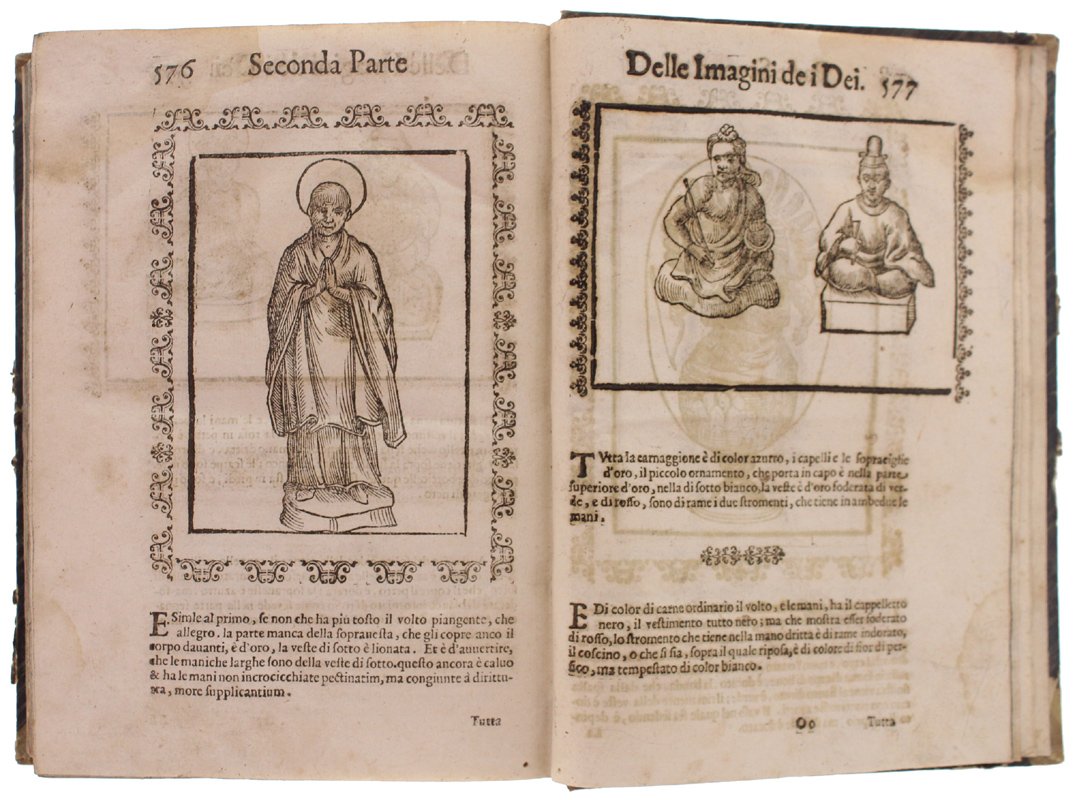 576 Seconda Parte
E Simile al primo, se non che ha piu tosto il volto piangente, che
allegro. la parte manca della soprauesta, che gli copre anco il
corpo dauanti, è d'oro, la veste di sotto è lionata. Et è d'auuertire,
che le maniche larghe sono della veste di sotto. questo ancora è caluo
& ha le mani non incrocicchiate pectinatim, ma congiunte à dirittu-
ra, more supplicantium.
Tutta
Delle Imagini de i Dei. 577
TVtta la carnaggione è di color azurro, i capelli e le sopraciglie
d'oro, il piccolo ornamento, che porta in capo è nella parte
superiore d'oro, nella di sotto bianco, la veste è d'oro foderata di ver-
de, e di rosso, sono di rame i due stromenti, che tiene in ambedue le
mani.
E Di color di carne ordinario il volto, e le mani, ha il cappelletto
nero, il vestimento tutto nero; ma che mostra esser foderato
di rosso, lo stromento che tiene nella mano dritta è di rame indorato,
il coscino, o che si sia, sopra il quale riposa, è di colore di fior di per-
sico, ma tempestato di color bianco.
Oo Tutta